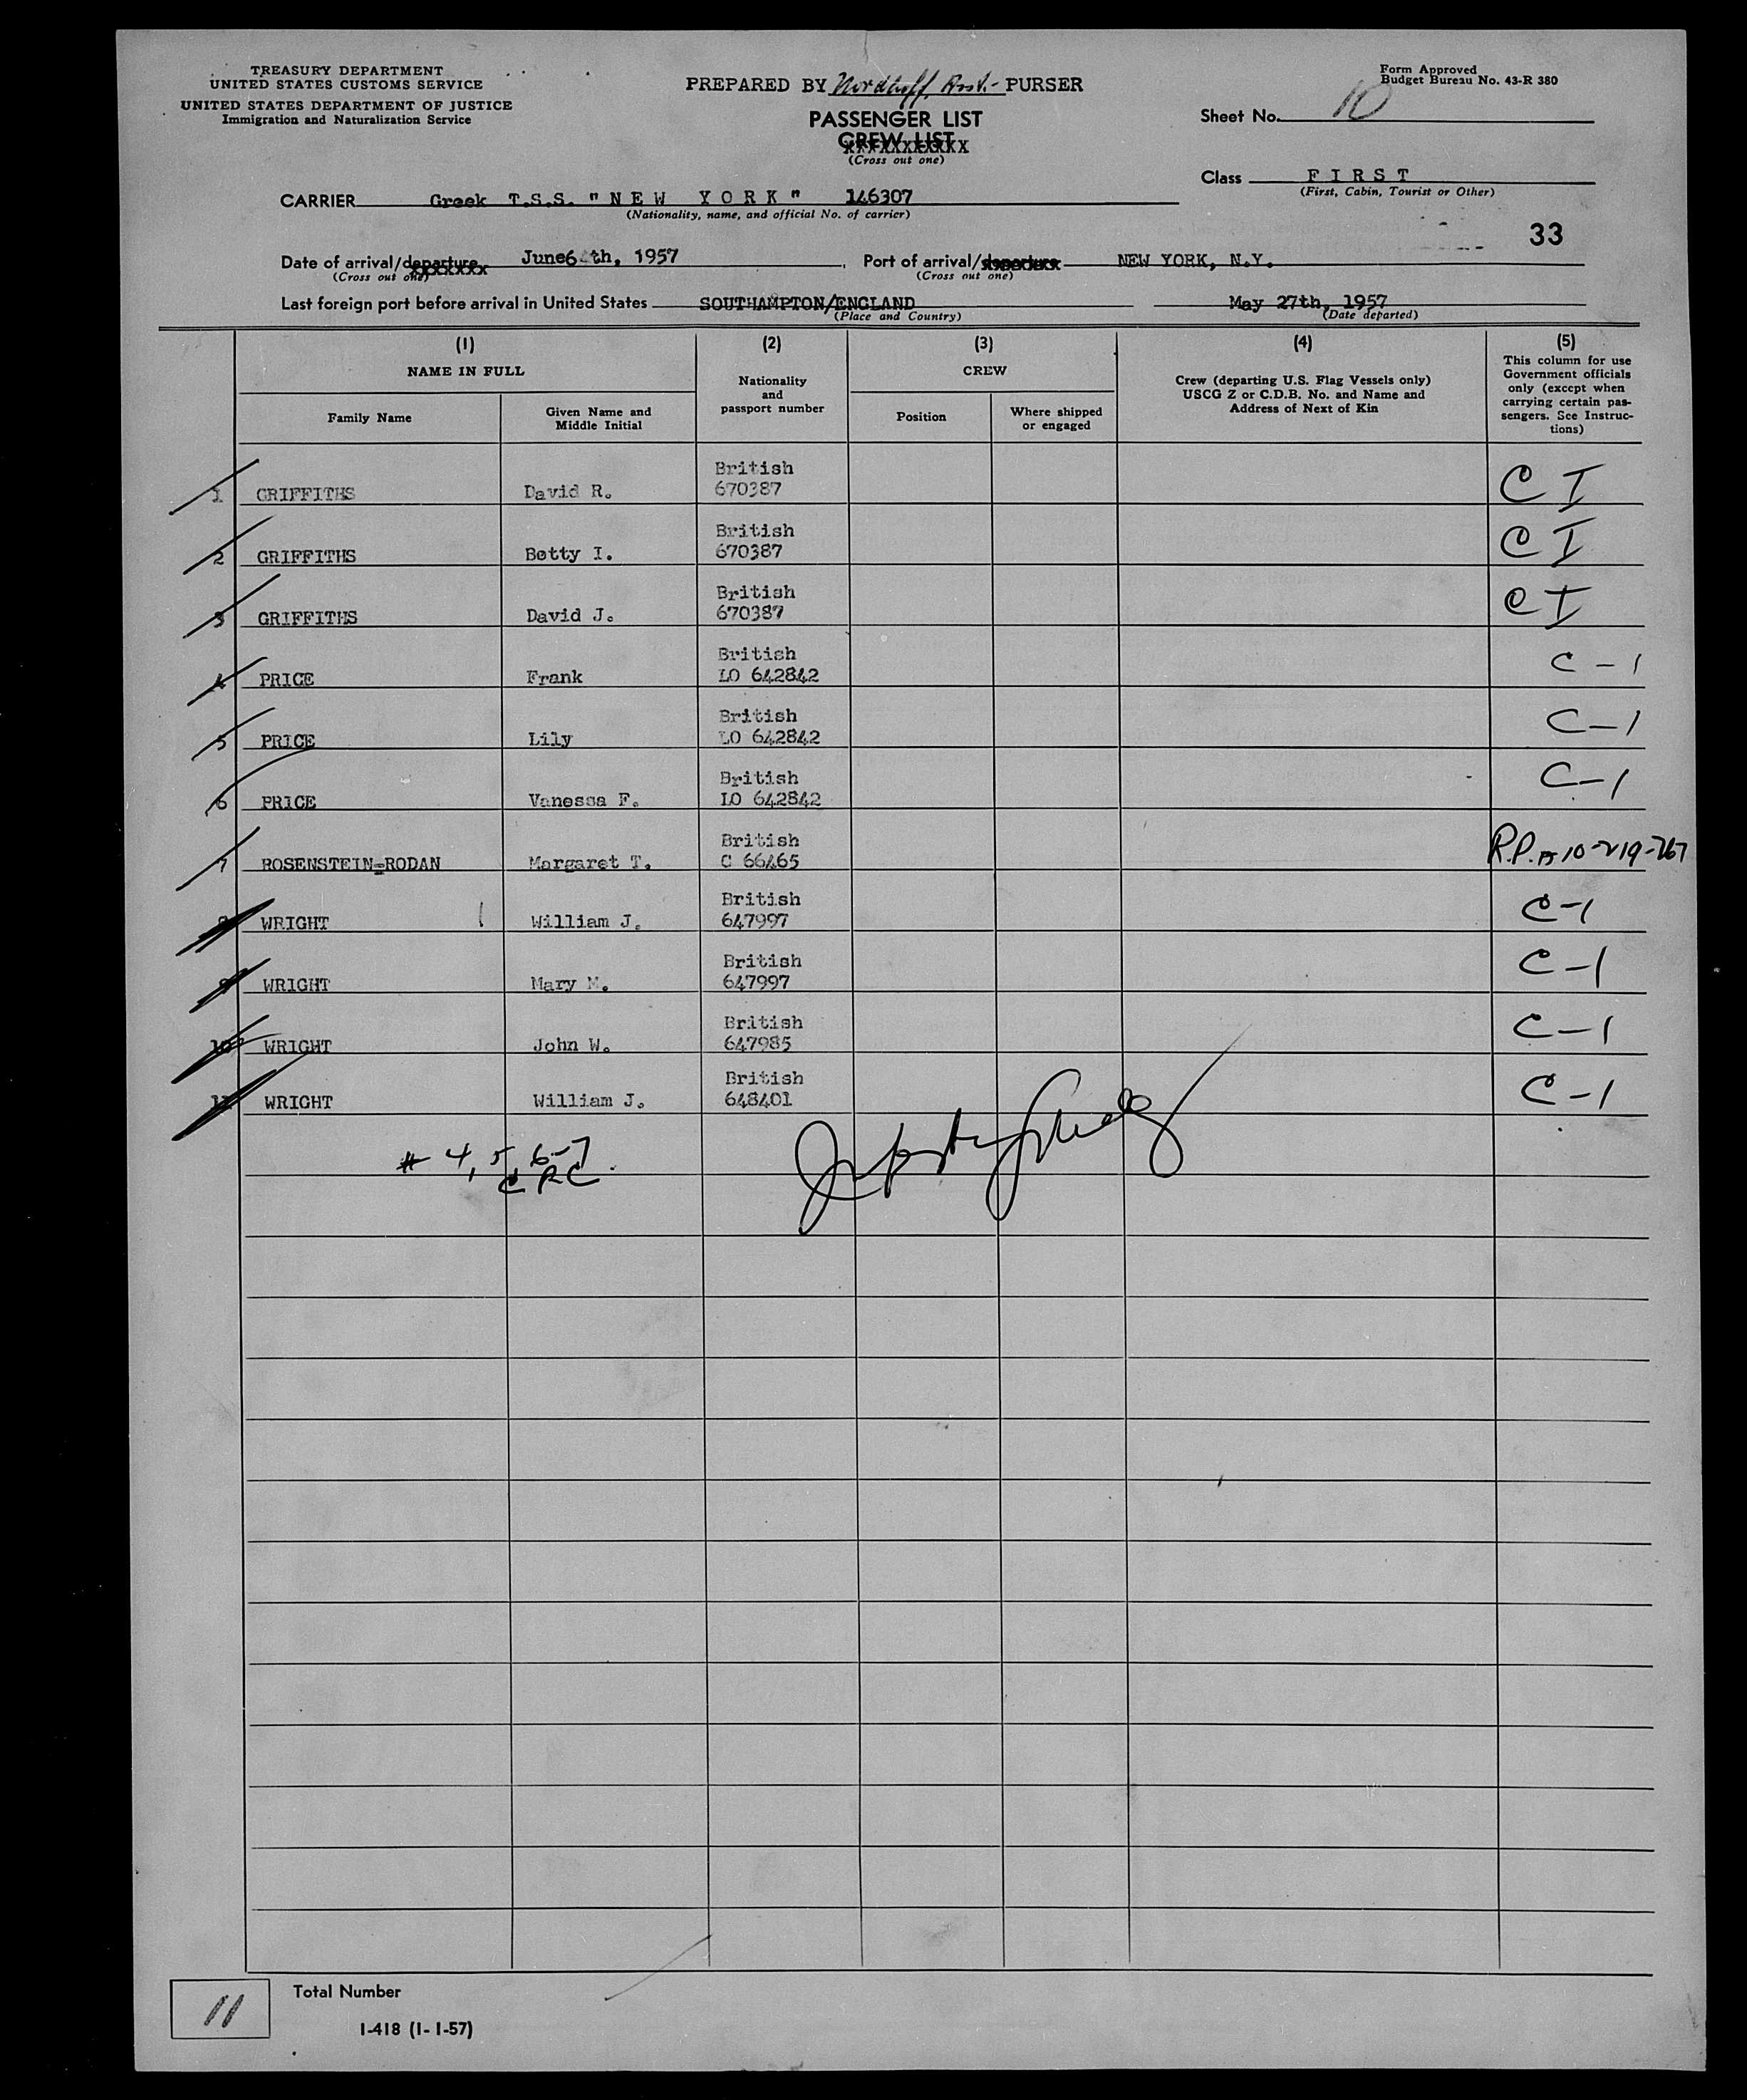 TREASURY DEPARTMENT
UNITED STATES CUSTOMS SERVICE
UNITED STATES DEPARTMENT OF JUSTICE
Immigration and Naturalization Service
PREPARED BY Nordhoff, Asst.- PURSER
PASSENGER LIST
CREW LIST
(Cross out one)
Form Approved
Budget Bureau No. 43-R 380
Sheet No. 10
Class FIRST
(First, Cabin, Tourist or Other)
CARRIER Greek T.S.S. "NEW YORK" 146307
(Nationality, name, and official No. of carrier)
33
Date of arrival/departure June 6 th, 1957 Port of arrival/departure NEW YORK, N.Y.
(Cross out one) (Cross out one)
Last foreign port before arrival in United States SOUTHAMPTON/ENGLAND May 27th, 1957
(Place and Country) (Date departed)
(1) (2) (3) (4) (5)
NAME IN FULL
Family Name
Given Name and
Middle Initial
Nationality
and
passport number
CREW
Position
Where shipped
or engaged
Crew (departing U.S. Flag Vessels only)
USCG Z or C.D.B. No. and Name and
Address of Next of Kin
This column for use
Government officials
only (except when
carrying certain pas-
sengers. See Instruc-
tions)
British
1 GRIFFITHS David R. 670387 C I
British
2 GRIFFITHS Betty I. 670387 C I
British
3 GRIFFITHS David J. 670387 C I
British
4 PRICE Frank LO 642842 C-1
British
5 PRICE Lily LO 642842 C-1
British
6 PRICE Vanessa F. LO 642842 C-1
British
7 ROSENSTEIN-RODAN Margaret T. C 66465 R.P. 10-219-767
British
8 WRIGHT William J. 647997 C-1
British
9 WRIGHT Mary M. 647997 C-1
British
10 WRIGHT John W. 647985 C-1
British
11 WRIGHT William J. 648401 C-1
# 4, 5, 6-7
C R C
11 Total Number
I-418 (1-1-57)